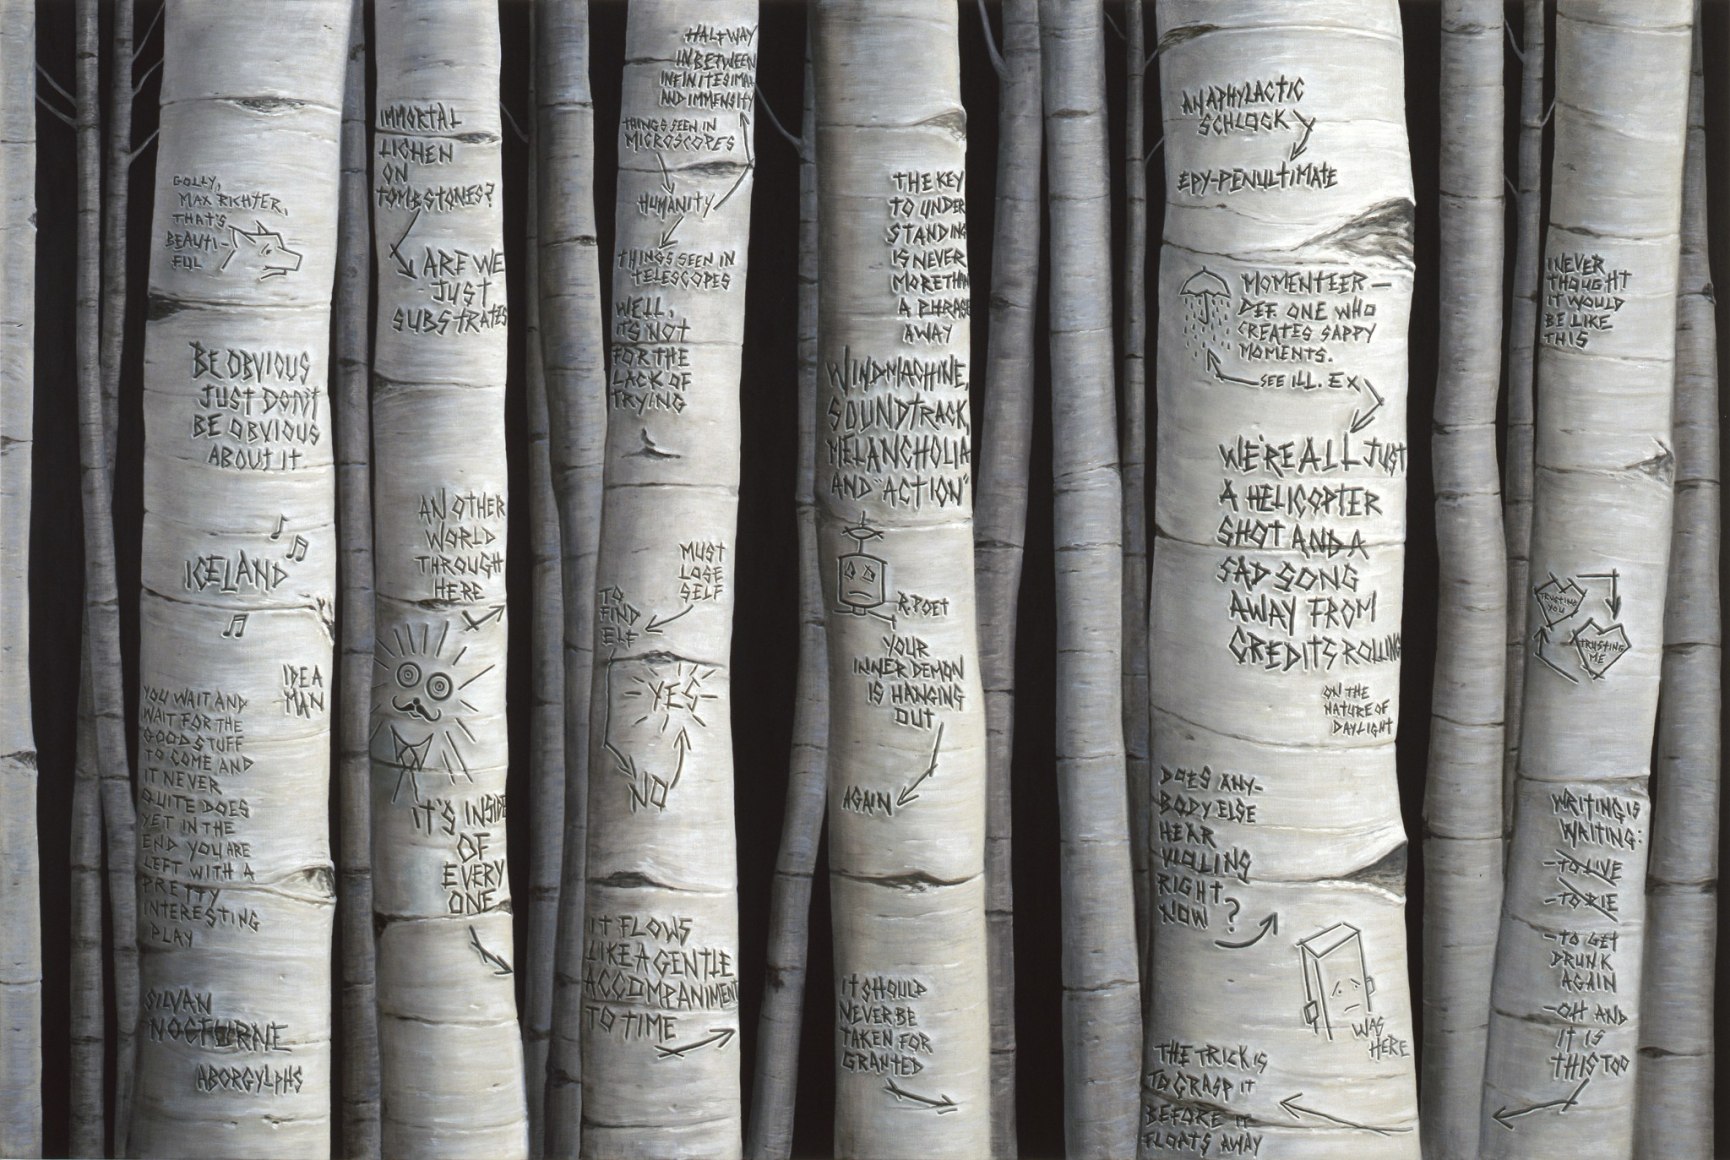 GOLLY,
MAX RICHTER,
THAT'S
BEAUTI-
FUL
BE OBVIOUS
JUST DON'T
BE OBVIOUS
ABOUT IT.
ICELAND
IDEA
MAN
YOU WAIT AND
WAIT FOR THE
GOOD STUFF
TO COME AND
IT NEVER
QUITE DOES
YET IN THE
END YOU ARE
LEFT WITH A
PRETTY
INTERESTING
PLAY
SILVAN
NOCTURNE
ABORGYLPHS
IMMORTAL
LICHEN
ON
TOMBSTONES?
ARE WE
JUST
SUBSTRATES
ANOTHER
WORLD
THROUGH
HERE
IT'S INSIDE
OF
EVERY
ONE
HALFWAY
IN BETWEEN
INFINITESIMAL
AND IMMENSITY
THINGS SEEN IN
MICROSCOPES
HUMANITY
THINGS SEEN IN
TELESCOPES
WELL,
IT'S NOT
FOR THE
LACK OF
TRYING
MUST
LOSE
SELF
TO
FIND
ELF
YES
NO
IT FLOWS
LIKE A GENTLE
ACCOMPANIMENT
TO TIME
THE KEY
TO UNDER
STANDING
IS NEVER
MORE THAN
A PHRASE
AWAY
WINDMACHINE,
SOUNDTRACK,
MELANCHOLIA
AND "ACTION"
R. POET
YOUR
INNER DEMON
IS HANGING
OUT
AGAIN
IT SHOULD
NEVER BE
TAKEN FOR
GRANTED
ANAPHYLACTIC
SCHLOCK
EPY-PENULTIMATE
MOMENTEER –
DEF. ONE WHO
CREATES SAPPY
MOMENTS.
SEE ILL. EX
WE'RE ALL JUST
A HELICOPTER
SHOT AND A
SAD SONG
AWAY FROM
CREDITS ROLLING
ON THE
NATURE OF
DAYLIGHT
DOES ANY-
BODY ELSE
HEAR
VIOLING
RIGHT
NOW?
WAS
HERE
THE TRICK IS
TO GRASP IT
BEFORE IT
FLOATS AWAY
I NEVER
THOUGHT
IT WOULD
BE LIKE
THIS
TRUSTING
YOU
TRUSTING
ME
WRITING IS
WAITING:
-TO LIVE
-TO DIE
-TO GET
DRUNK
AGAIN
-OH AND
IT IS
THIS TOO